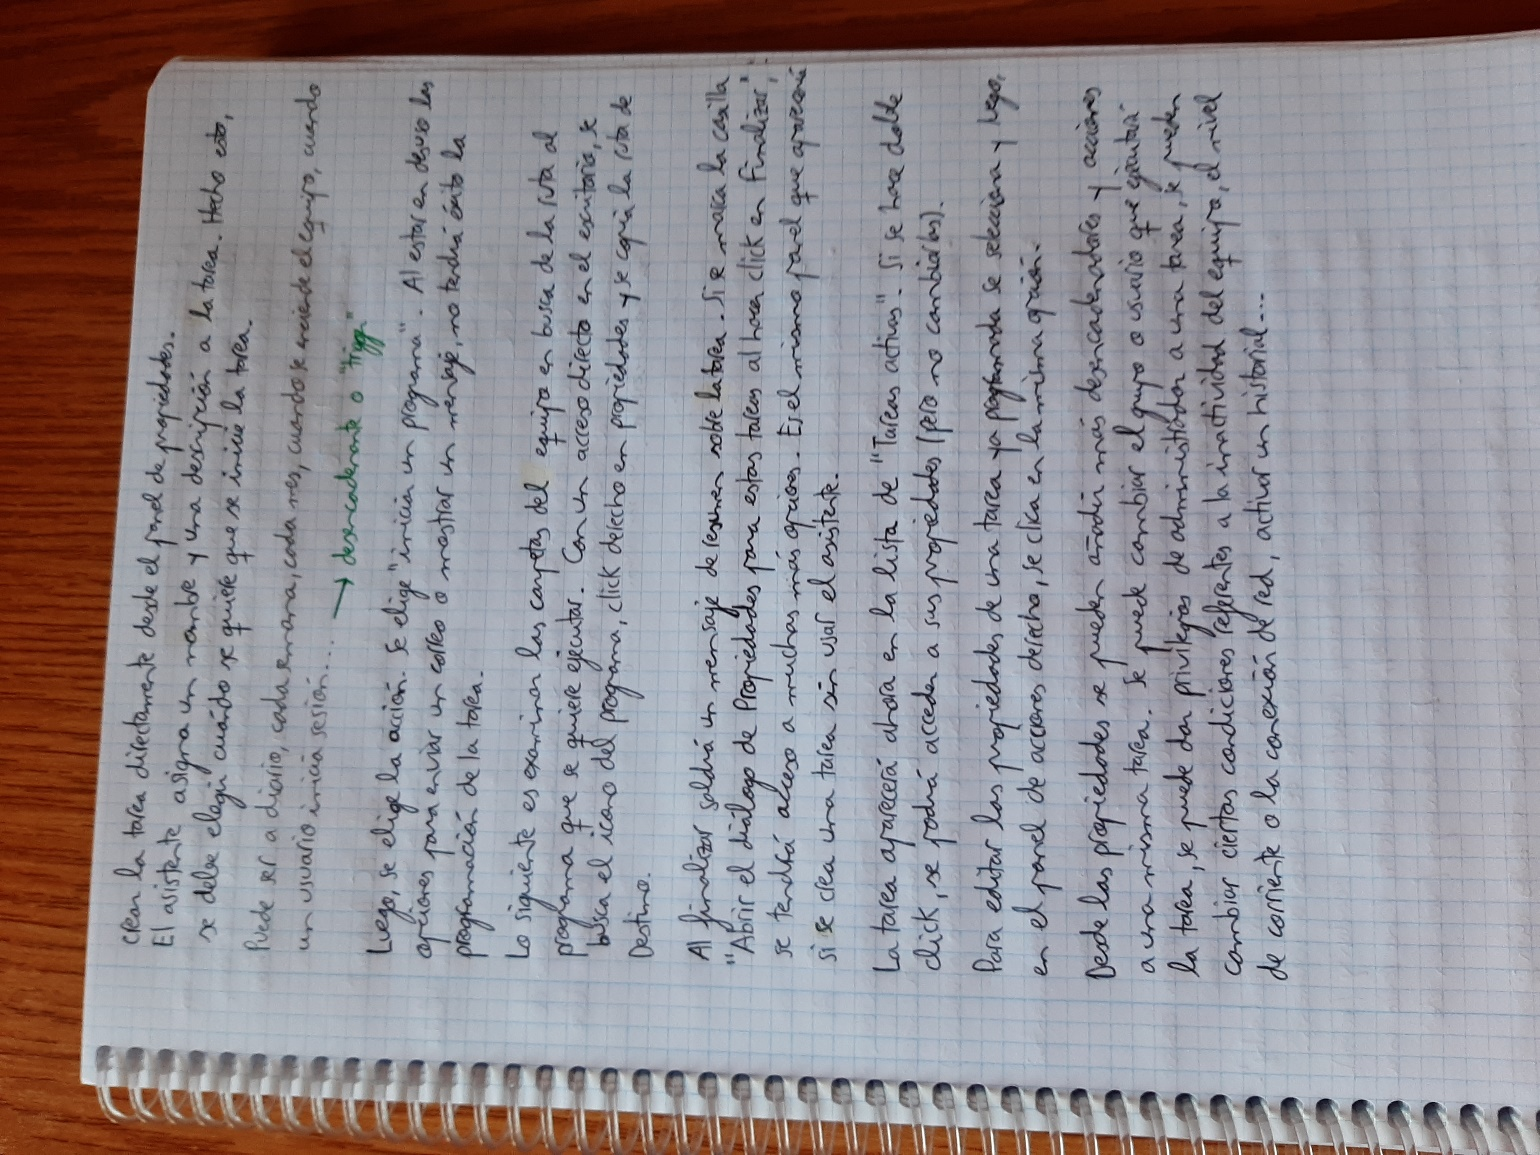 crear la tarea directamente desde el panel de propiedades.
El asistente asigna un nombre y una descripción a la tarea. Hecho esto,
se debe elegir cuándo se quiere que se inicie la tarea.
Puede ser a diario, cada semana, cada mes, cuando se enciende el equipo, cuando
un usuario inicia sesión....
→ desencadenante o "trigger"
Luego, se elige la acción. Se elige "iniciar un programa". Al estar en desuso las
opciones para enviar un correo o mostrar un mensaje, no tendrá éxito la
programación de la tarea.
Lo siguiente es examinar las carpetas del equipo en busca de la ruta al
programa que se quiere ejecutar. Con un acceso directo en el escritorio, se
busca el icono del programa, click derecho en propiedades y se copia la ruta de
Destino.
Al finalizar saldrá un mensaje de resumen sobre la tarea. Si se marca la casilla
"Abrir el diálogo de Propiedades para estas tareas al hacer click en Finalizar",
se tendrá acceso a muchas más opciones. Es el mismo panel que aparecerá
si se crea una tarea sin usar el asistente.
La tarea aparecerá ahora en la lista de "Tareas activas". Si se hace doble
click, se podrá acceder a sus propiedades (pero no cambiarlas).
Para editar las propiedades de una tarea ya programada se selecciona y luego,
en el panel de acciones derecho, se clica en la misma opción.
Desde las propiedades se pueden añadir más desencadenadores y acciones
a una misma tarea. Se puede cambiar el grupo o usuario que ejecutará
la tarea, se puede dar privilegios de administrador a una tarea, se pueden
cambiar ciertas condiciones referentes a la inactividad del equipo, el nivel
de corriente o la conexión de red, activar un historial...